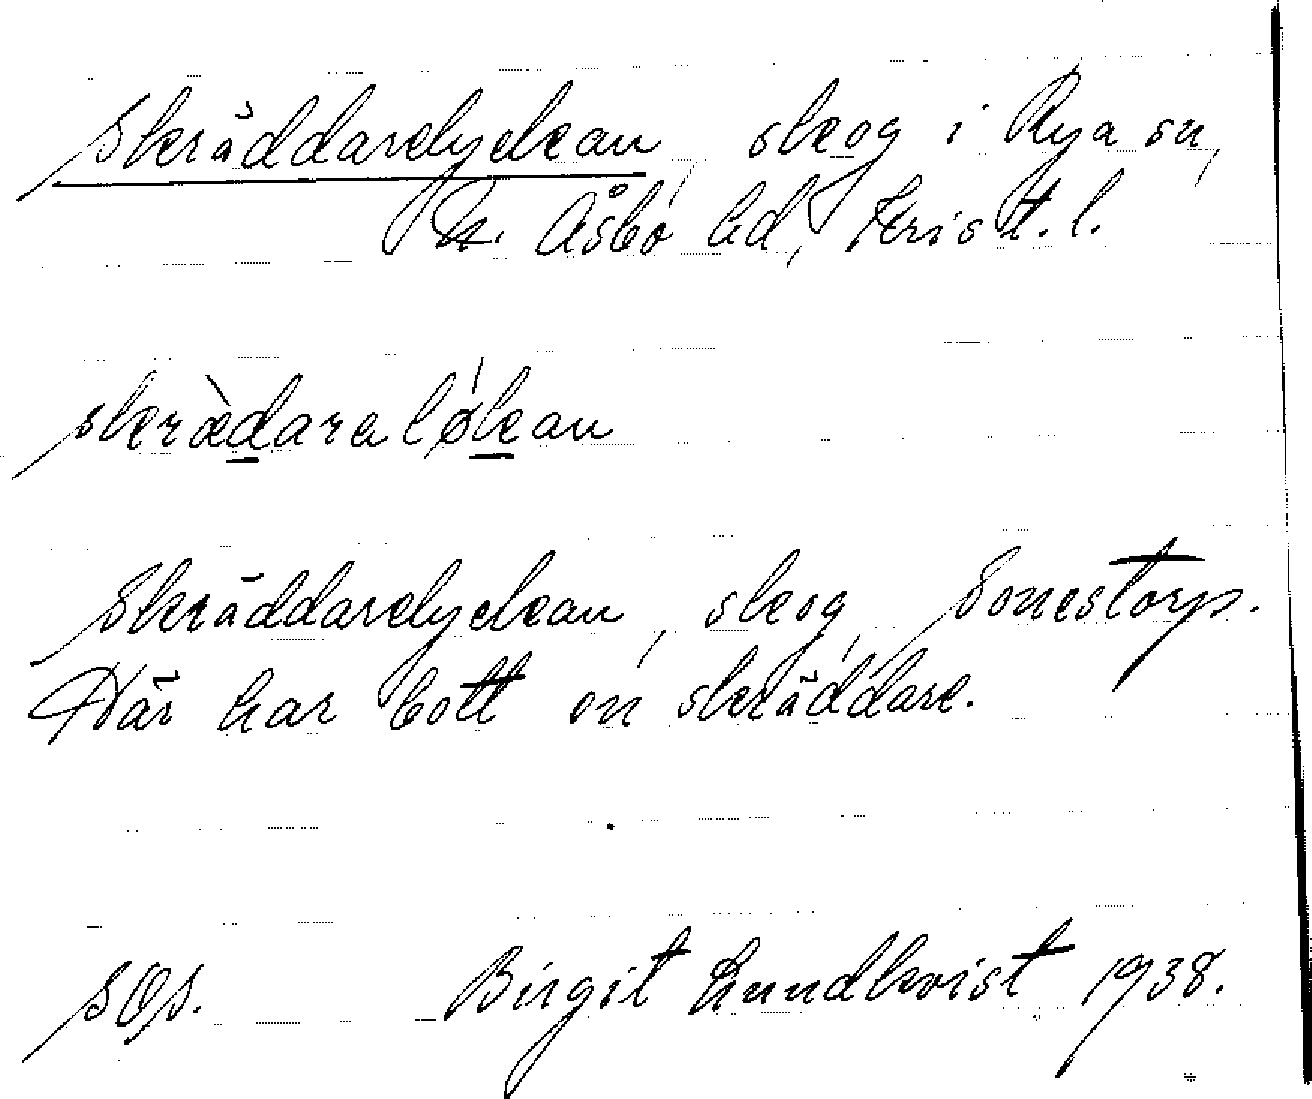 Skräddarelyckan, skog i Rya sn,
N. Åsbo hd, Krist. l.
skræ̀daralǿkan
Skräddarelyckan, skog, Sonestorp.
Där har bott en skräddare.
SOS. Birgit Lundkvist 1938.